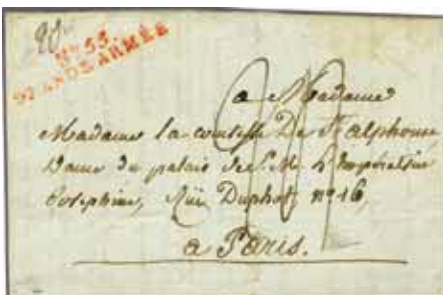 N° 55
GRANDE ARMÉE
a Madame
Madame la comtesse De St. alphonse
Dame du palais de S. M. L'Impératrice
Josephine, Rüe Duphot, n° 16,
a Paris.